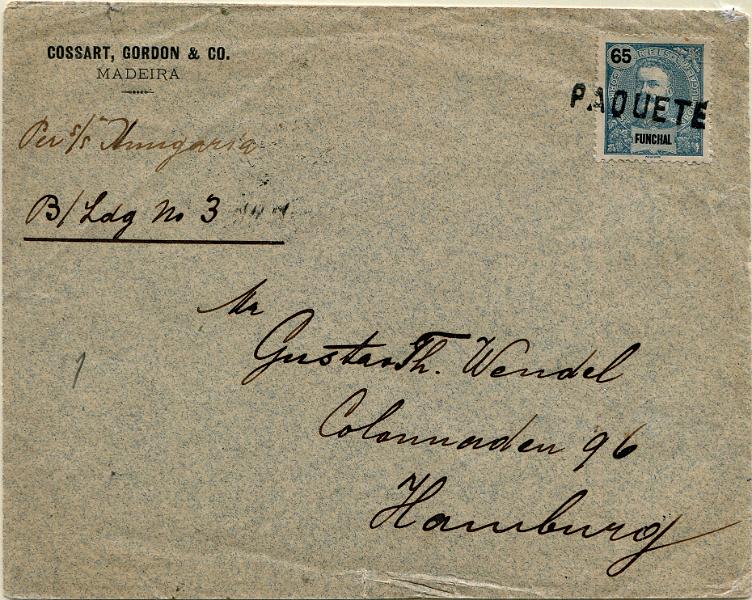 COSSART, GORDON & CO.
MADEIRA
Per s/s Hungaria
B/Ldg No 3
65
PAQUETE
FUNCHAL
Mr
Gustav Th. Wendel
Colonnaden 96
Hamburg
1